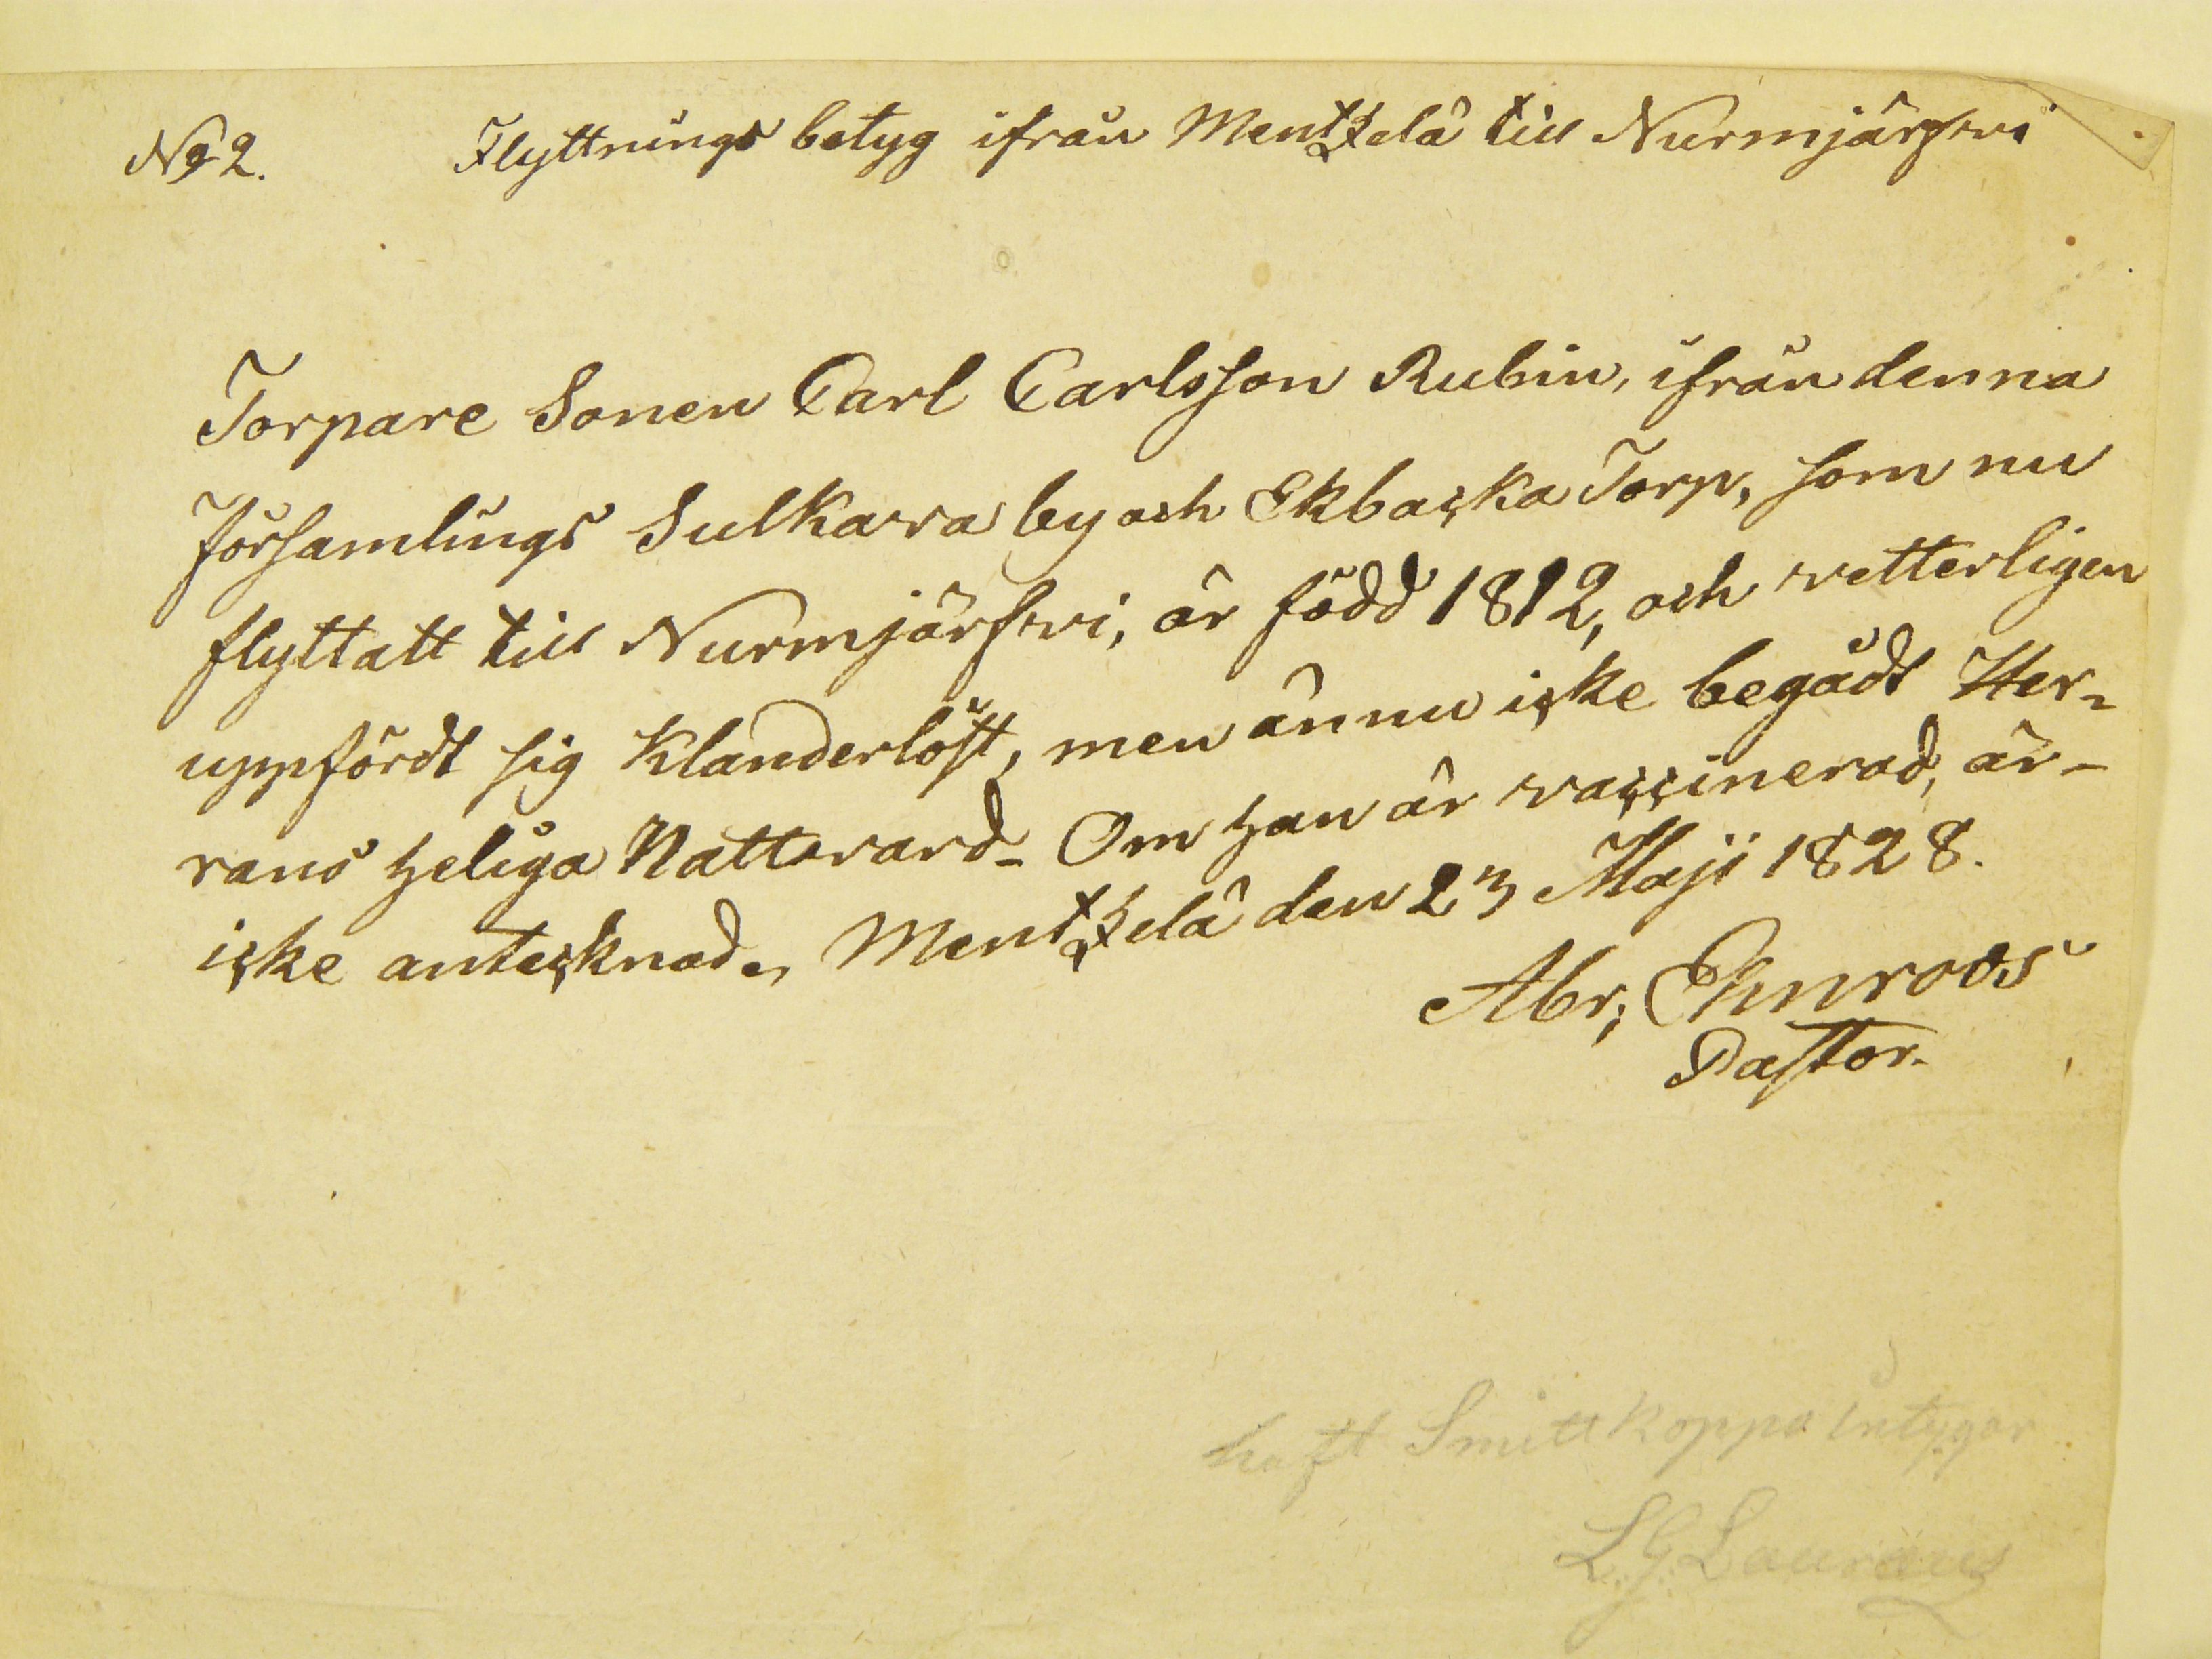 No 2. Flyttnings betyg ifrån Mentzelä till Nurmjärfwi
Torpare Sonen Carl Carlsson Rubin, ifrån denna
församlings Sulkava by och Ekbacka Torp, som nu
flyttatt till Nurmjärfwi, är född 1812, och vetterligen
uppfördt sig Klanderlöst, men ännu icke begådt Her-
rans heliga Nattvard_ Om han är vaccinerad, är-
icke antecknad. Mentzelä den 23 Maji 1828.
Abr; Ehnroos
Pastor.
haft Smittkoppa intygar
L. G. Lauræus